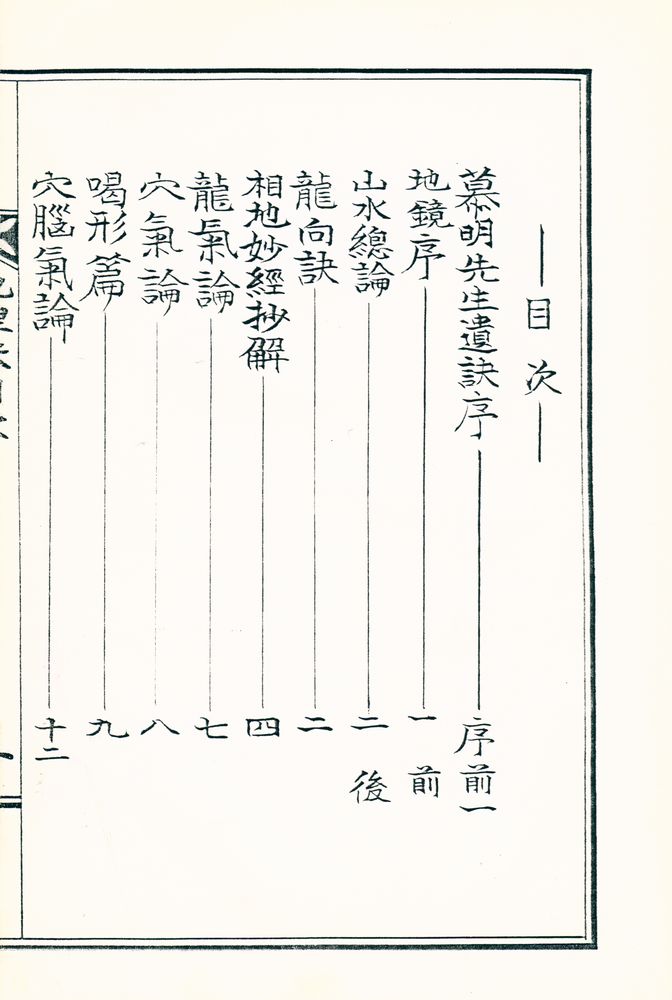 目次
慕明先生遺訣序 序前一
地鏡序 一前
山水總論 二後
龍向訣 二
相地妙經抄解 四
龍氣論 七
穴氣論 八
喝形篇 九
穴腦氣論 十二